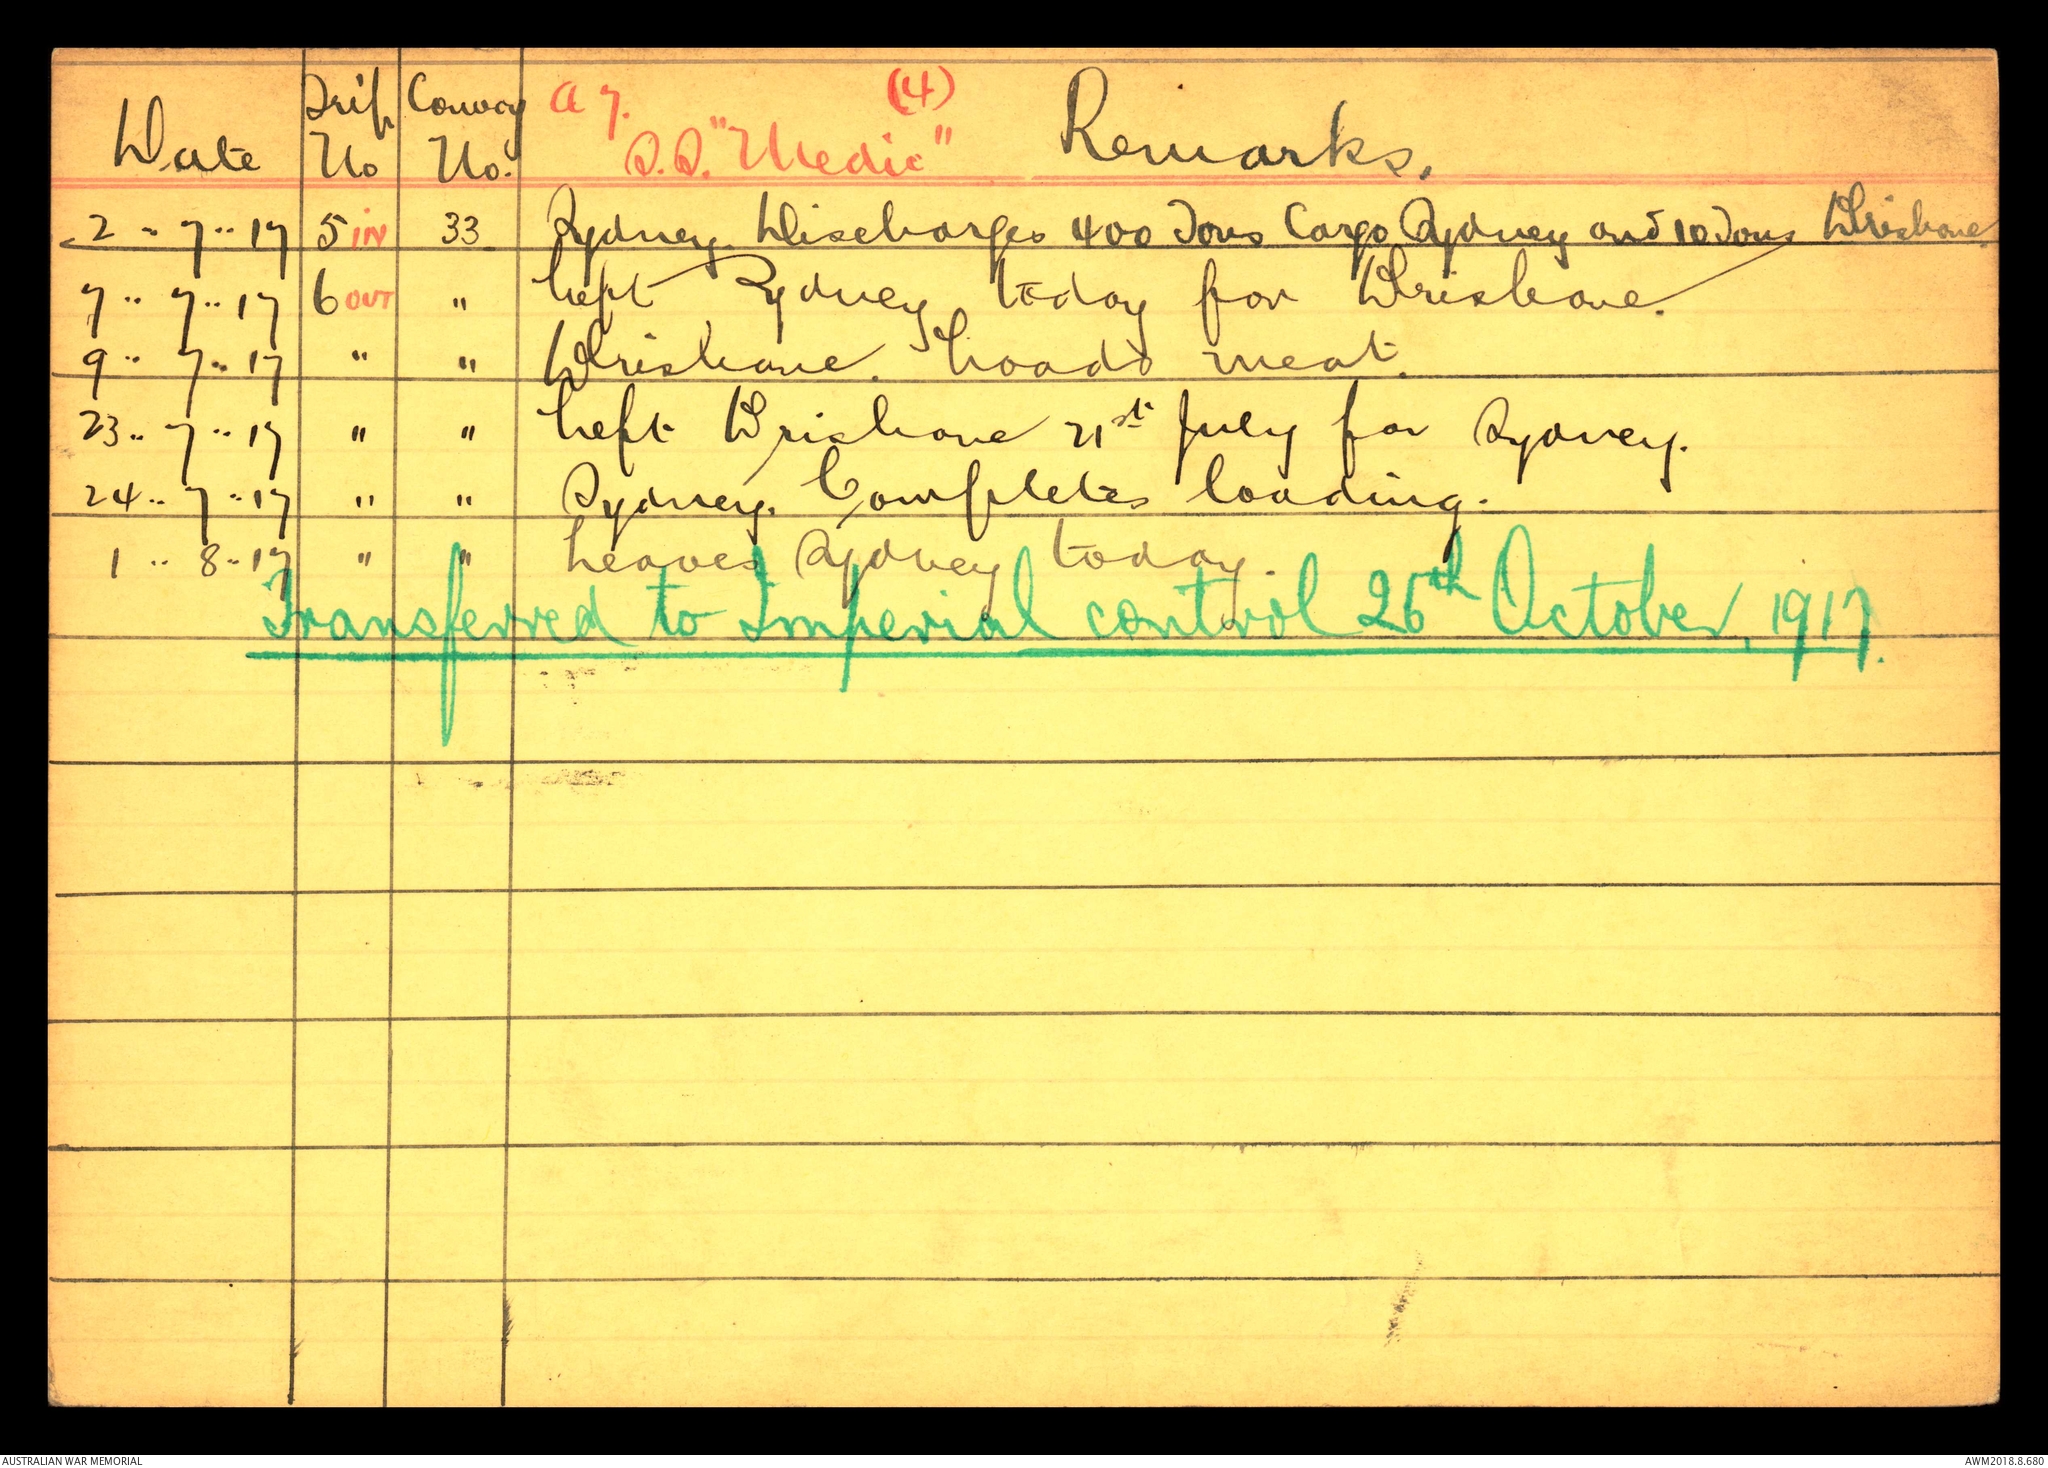 Date Trip No Convoy No. A 7. (4) S.S. "Medic" Remarks.
2..7..17 5 IN 33 Sydney. Discharges 400 Tons Cargo Sydney and 10 Tons Brisbane.
7..7..17 6 OUT " Left Sydney today for Brisbane.
9..7..17 " " Brisbane. Loads meat.
23..7..17 " " Left Brisbane 21st July for Sydney.
24..7..17 " " Sydney. Completes loading.
1..8..17 " " Leaves Sydney today.
Transferred to Imperial control 26th October, 1917.
AUSTRALIAN WAR MEMORIAL AWM2018.8.680